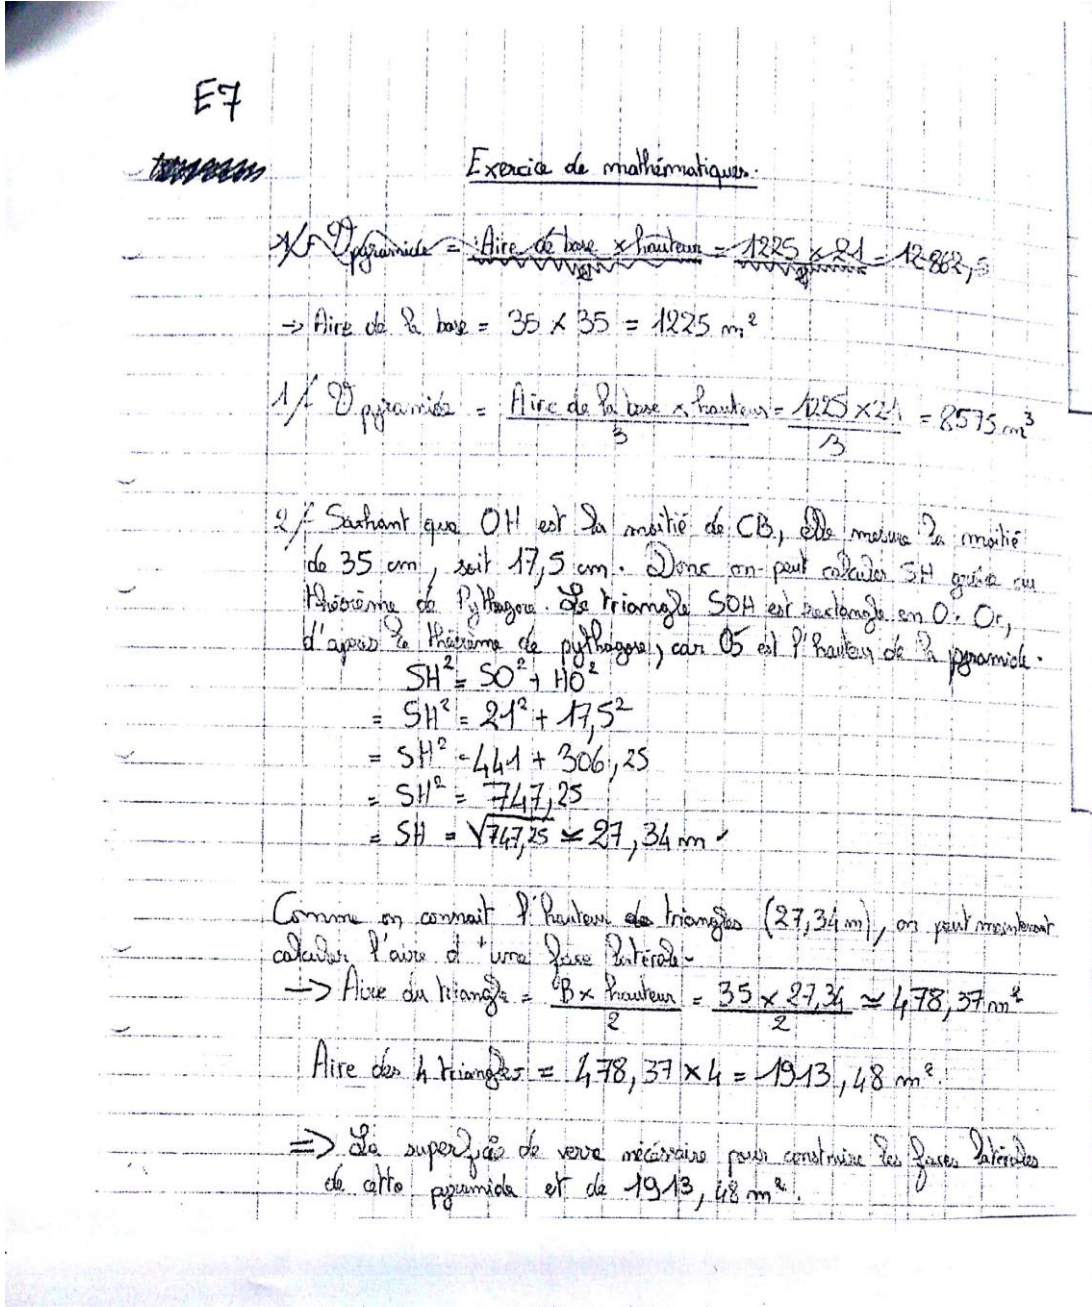 E7
Exercice de mathématiques.
1/- V pyramide = Aire de base x hauteur / 2 = 1225 x 21 / 2 = 12 862,5
-> Aire de la base = 35 x 35 = 1225 m²
1/- V pyramide = Aire de la base x hauteur / 3 = 1225 x 21 / 3 = 8575 m³
2/- Sachant que OH est la moitié de CB, elle mesure la moitié
de 35 cm, soit 17,5 cm. Donc on peut calculer SH grâce au
théorème de Pythagore. Le triangle SOH est rectangle en O. Or,
d'après le théorème de pythagore, car OS est l'hauteur de la pyramide.
SH² = SO² + HO²
= SH² = 21² + 17,5²
= SH² = 441 + 306,25
= SH² = 747,25
= SH = √747,25 ≃ 27,34 m
Comme on connait l'hauteur des triangles (27,34 m), on peut maintenant
calculer l'aire d'une face latérale.
-> Aire du triangle = B x hauteur / 2 = 35 x 27,34 / 2 ≃ 478,37 m²
Aire des 4 triangles = 478,37 x 4 = 1913,48 m².
=> La superficie de verre nécéssaire pour construire les faces latérales
de cette pyramide et de 1913,48 m².